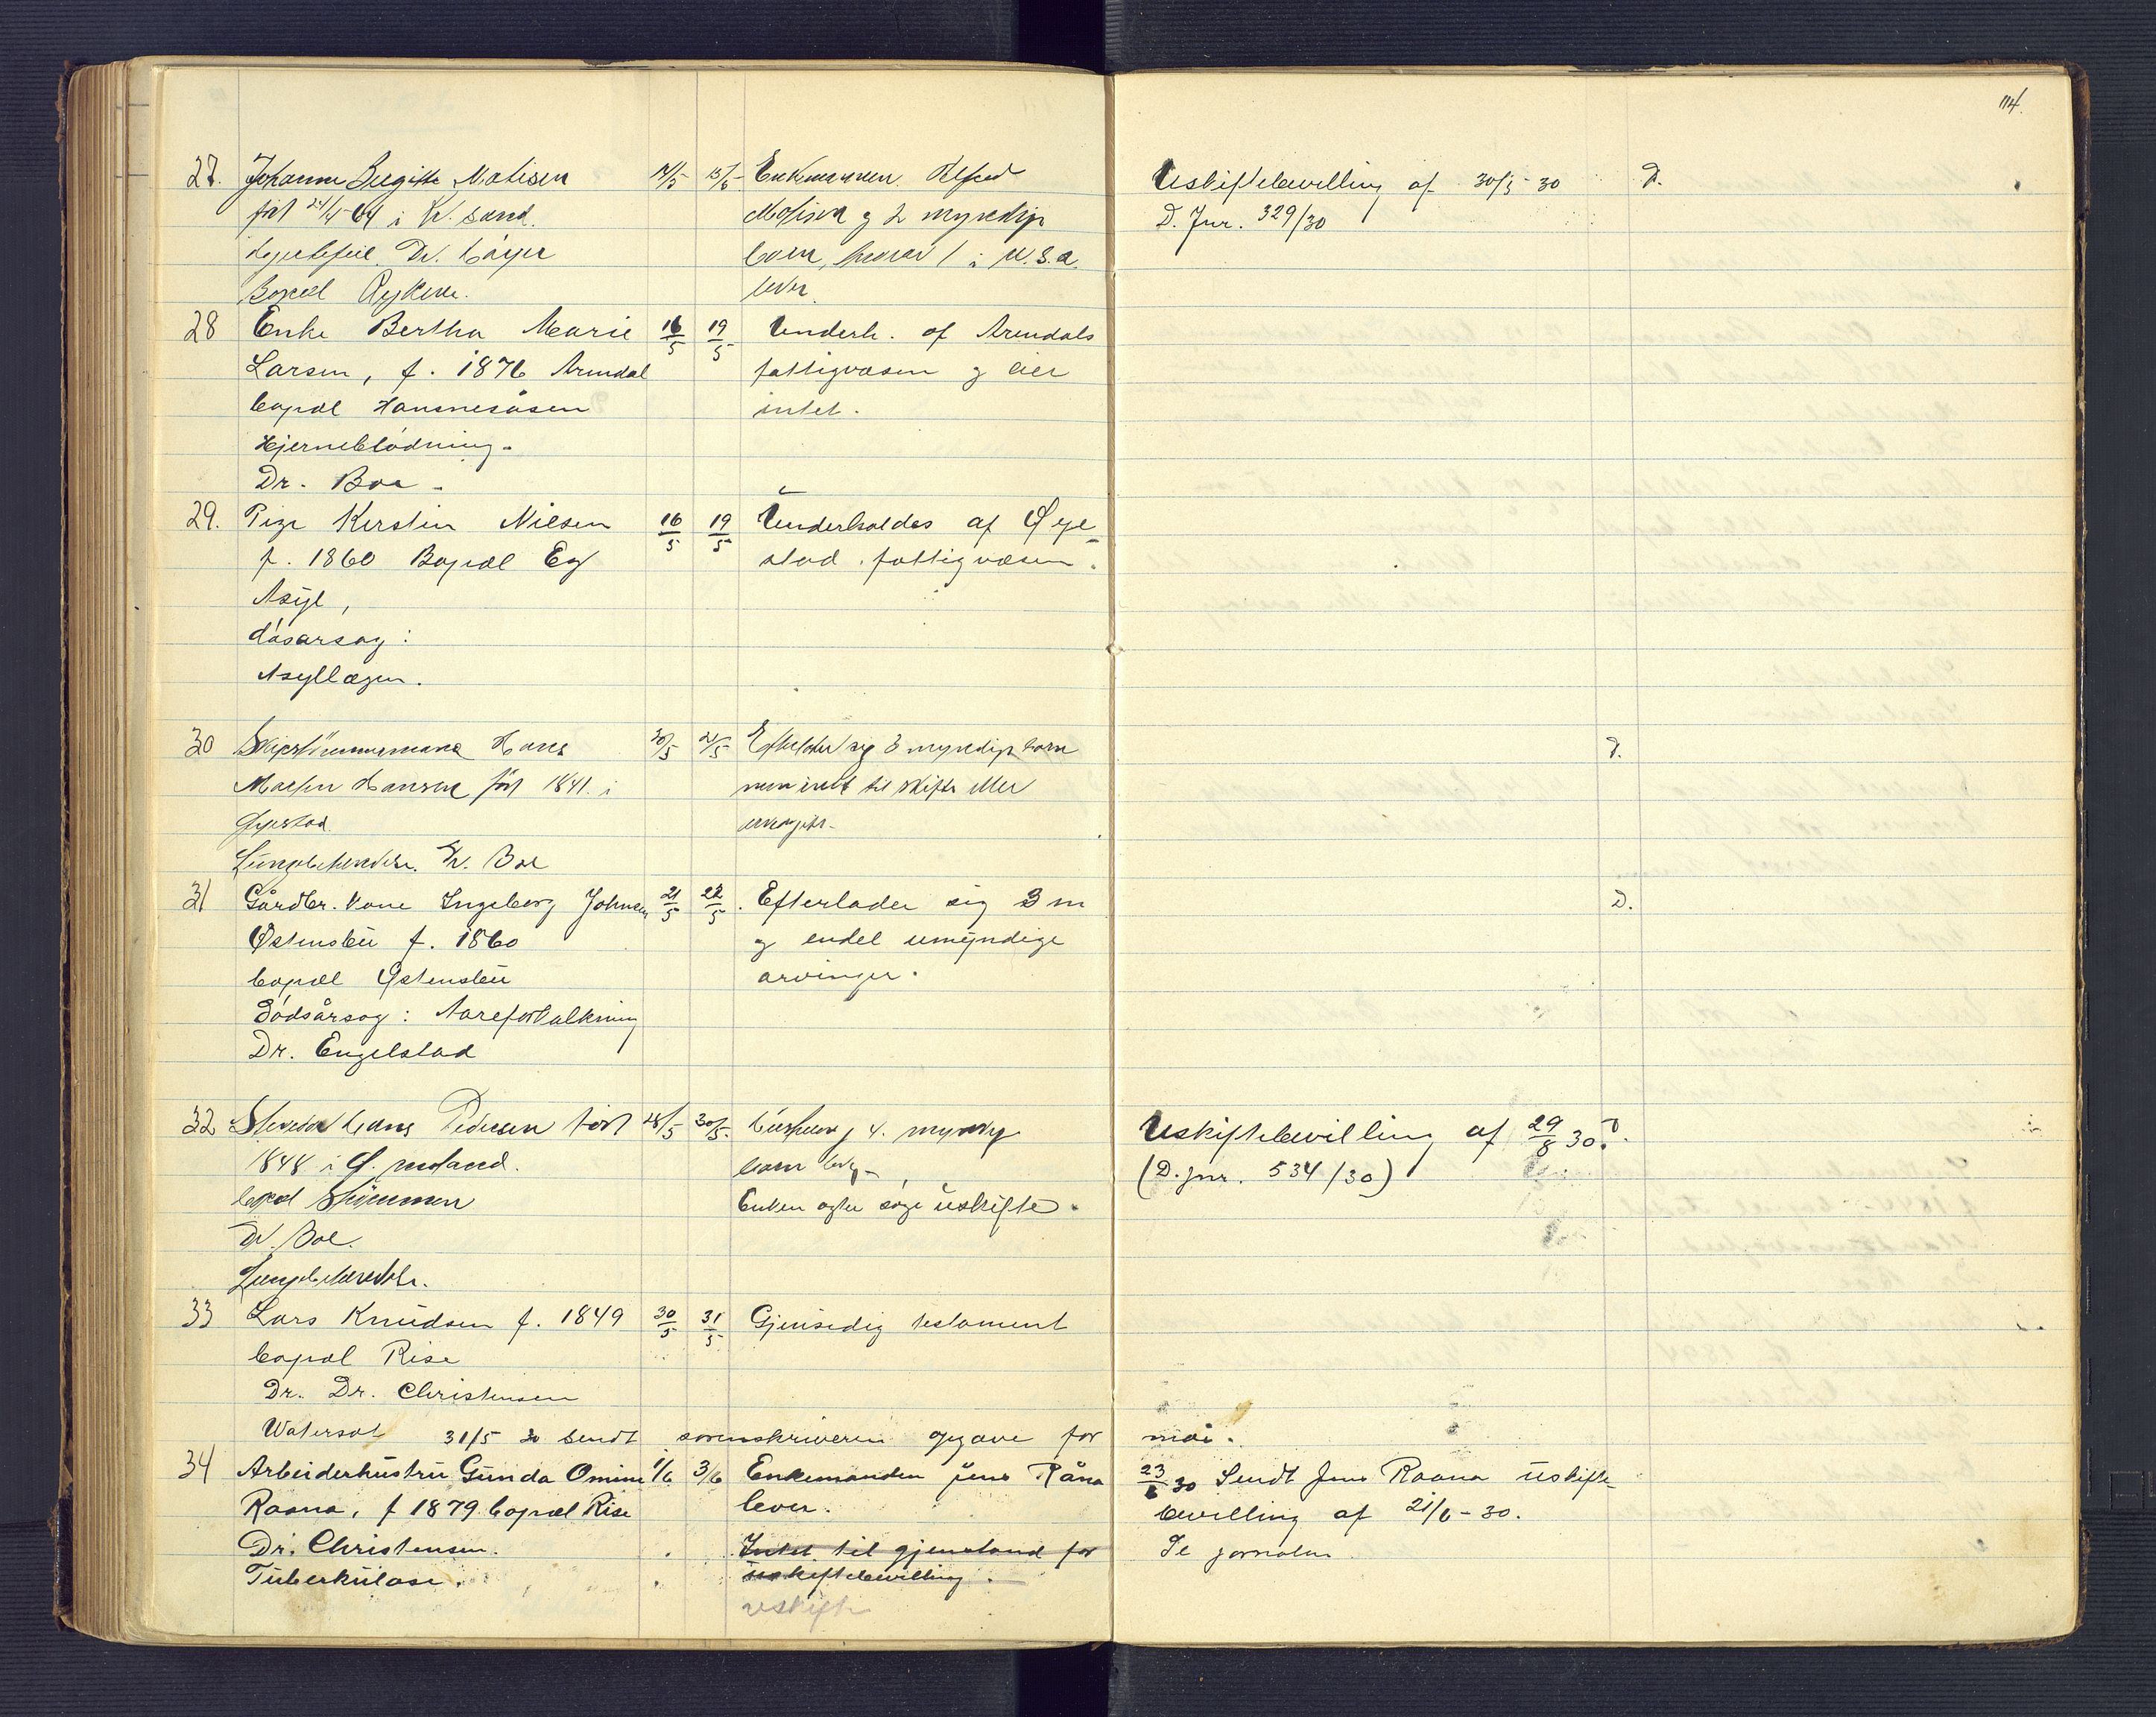 114.
27. Johanne Birgitte Matisen 14/5 15/5 Enkemannen Alfred
født 24/4-64 i Kr. sand. Matisen og 2 myndige
Hjertefeil. Dr. børn, hvorav 1 i U.S.A.
Bopæl Rykene. lever.
Uskiftebevilling af 30/5-30 D.
D. Jnr. 329/30
28 Enke Bertha Marie 16/5 19/5 Underh. af Arendals
Larsen, f. 1876 Arendal fattigvæsen og eier
bopæl Hansnesåsen intet.
Hjerneblødning.
Dr. Boe.
29. Pige Kerstin Nielsen 16/5 19/5 Underholdes af Øye-
f. 1860 Bopæl Eg stad fattigvæsen.
Asyl,
dösarsag:
Asyllægen.
30 Skipstömmermann Hans 20/5 21/5 Efterlater sig 3 myndige barn D.
Hansen født 1841 i men intet til skifte eller
Øyestad
Lungebetendelse. Dr. Boe
31 Gårdbr. kone Ingeborg Johnsen 21/5 22/5. Efterlader sig 3 m D.
Østensbu f. 1860 og endel umyndige
bopæl Østensbu arvinger.
Dödsårsag: Aareforkalkning
Dr. Engelstad
32 Hans Pedersen født 28/5 30/5. 4 myndige
1848 i Ø. barn
bopæl Strømmen Enken agter søge uskifte.
Dr. Boe.
Lungebetendelse.
Uskiftebevilling af 29/8 30. D.
(D. jnr. 534/30)
33 Lars Knudsen f. 1849 30/5 31/5 Gjensidig testament
bopæl Rise
Dr. Dr. Christensen
Watersot 31/5 30 sendt sorenskriveren opgave for mai.
34 Arbeiderhustru Gunda Omine 1/6 3/6 Enkemanden Jens Råna
Raana, f 1879. bopæl Rise lever.
Dr. Christensen. Intet til gjenstand for
Tuberkulose. uskiftebevilling.
uskifte
23/6 30 Sendt Jens Raana uskifte-
bevilling af 21/6-30.
Se jornalen